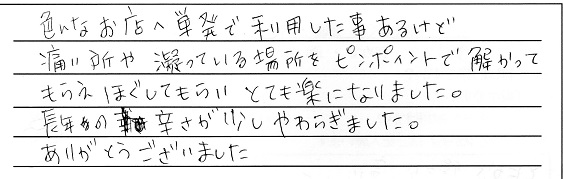 色いなお店へ単発で利用した事あるけど
痛い所や凝っている場所をピンポイントで解かって
もらえほぐしてもらいとても楽になりました。
長年の辛さが少しやわらぎました。
ありがとうございました